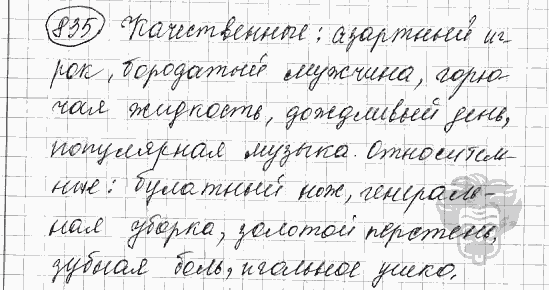 835 Качественные: азартный иг-
рок, бородатый мужчина, горю-
чая жидкость, дождливый день,
популярная музыка. Относитель-
ные: булатный нож, генераль-
ная уборка, золотой перстень,
зубная боль, игольное ушко.